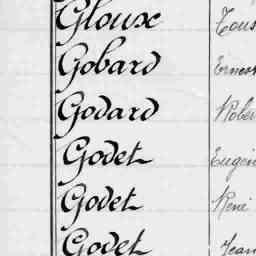 Gloux
Gobard Ernest
Godard Rober
Godet Eugèn
Godet René
Godet Jean